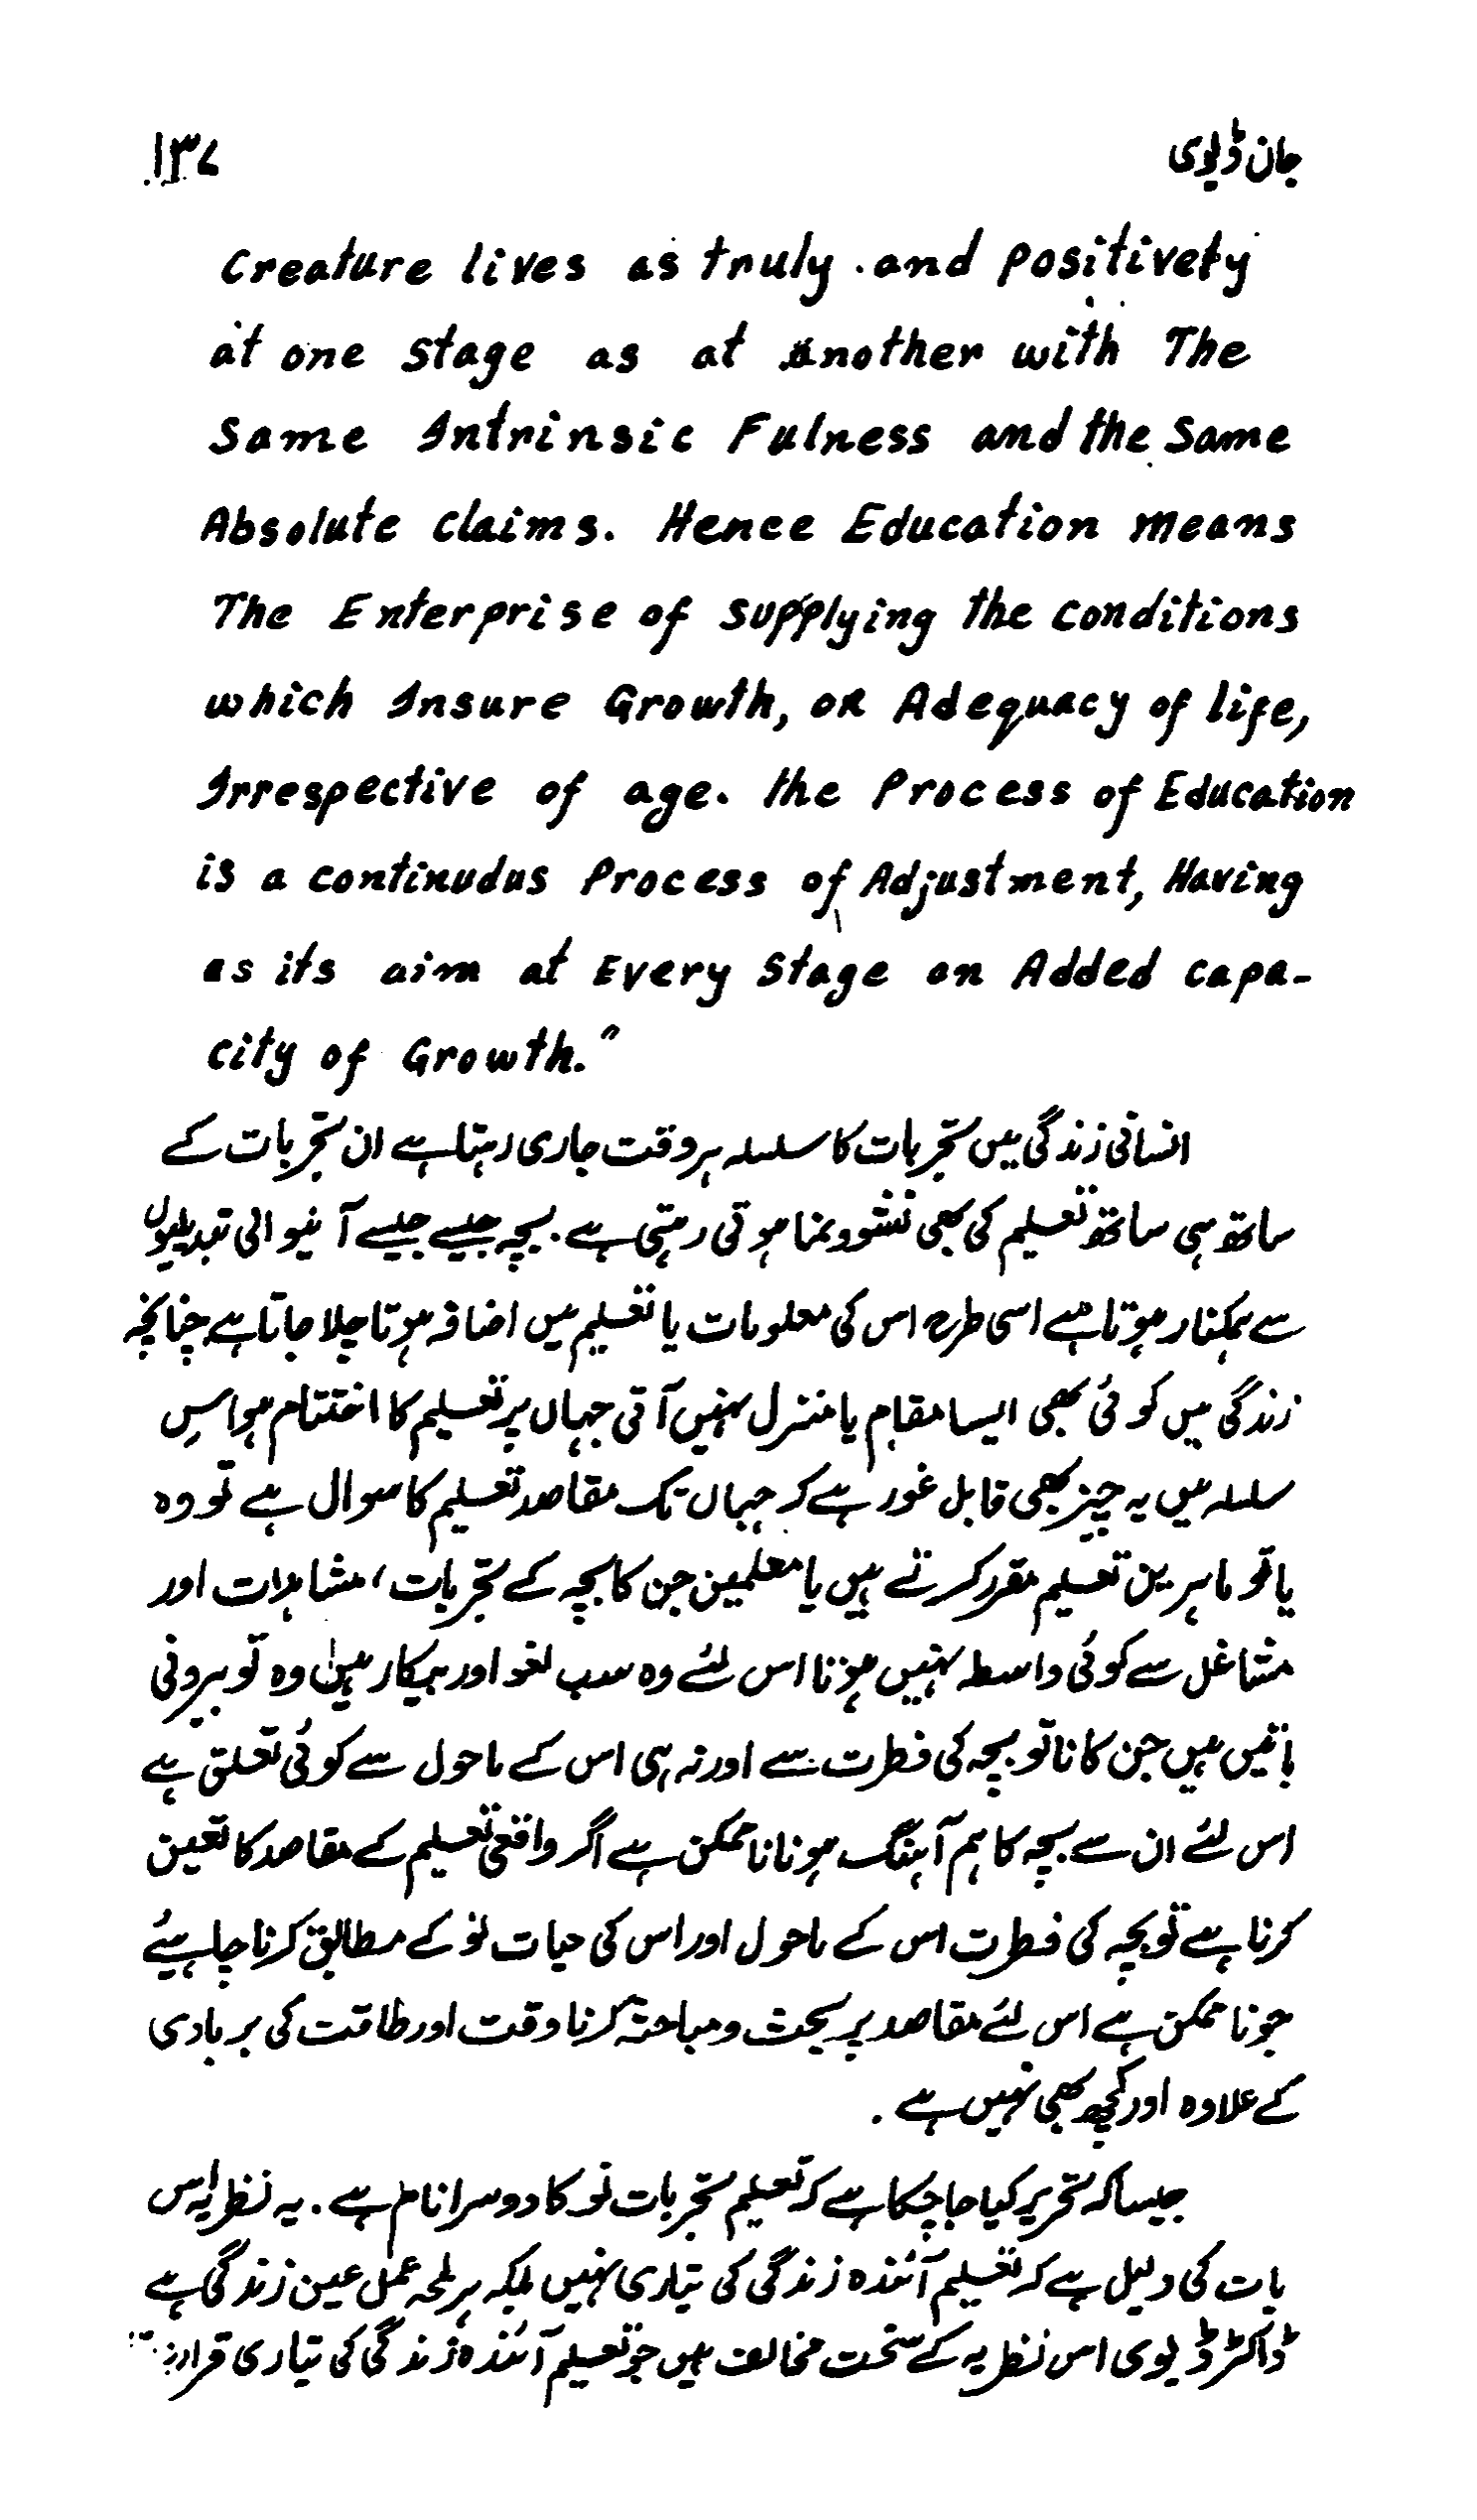 جان ڈیوی
۱۳۷
Creature lives as truly and positively
at one stage as at another with The
Same Intrinsic Fulness and the Same
Absolute claims. Hence Education means
The Enterprise of supplying the conditions
which Insure Growth, OR Adequacy of life,
Irrespective of age. the Process of Education
is a continudus Process of Adjustment, Having
as its aim at Every Stage an Added capa-
city of Growth."
انسانی زندگی میں تجربات کا سلسلہ ہر وقت جاری رہتا ہے ان تجربات کے
ساتھ ہی ساتھ تعلیم کی بھی نشوونما ہوتی رہتی ہے. بچہ جیسے جیسے آنیوالی تبدیلیوں
سے ہمکنار ہوتا ہے اسی طرح اس کی معلومات یا تعلیم میں اضافہ ہوتا چلا جاتا ہے چنانچہ
زندگی میں کوئی بھی ایسا مقام یا منزل نہیں آتی جہاں پر تعلیم کا اختتام ہو اسِ
سلسلہ میں یہ چیز بھی قابل غور ہے کہ جہاں تک مقاصد تعلیم کا سوال ہے تو وہ
یا تو ماہرین تعلیم مقرر کرتے ہیں یا معلمین جن کا بچہ کے تجربات، مشاہدات اور
مشاغل سے کوئی واسطہ نہیں ہوتا اس لئے وہ سب لغو اور بیکار ہیں وہ تو بیرونی
باتیں ہیں جن کا نا تو بچہ کی فطرت سے اور نہ ہی اس کے ماحول سے کوئی تعلق ہے
اس لئے ان سے بچہ کا ہم آہنگ ہونا ناممکن ہے اگر واقعی تعلیم کے مقاصد کا تعین
کرنا ہے تو بچہ کی فطرت اس کے ماحول اور اس کی حیات نو کے مطابق کرنا چاہیئے
جو ناممکن ہے اس لئے مقاصد پر بحث و مباحثہ کرنا وقت اور طاقت کی بربادی
کے علاوہ اور کچھ بھی نہیں ہے.
جیسا کہ تحریر کیا جا چکا ہے کہ تعلیم تجربات نو کا دوسرا نام ہے. یہ نظریہ اس
بات کی دلیل ہے کہ تعلیم آئندہ زندگی کی تیاری نہیں بلکہ ہر لمحہ عمل عین زندگی ہے
ڈاکٹر ڈیوی اس نظریہ کے سخت مخالف ہیں جو تعلیم آئندہ زندگی کی تیاری قرار